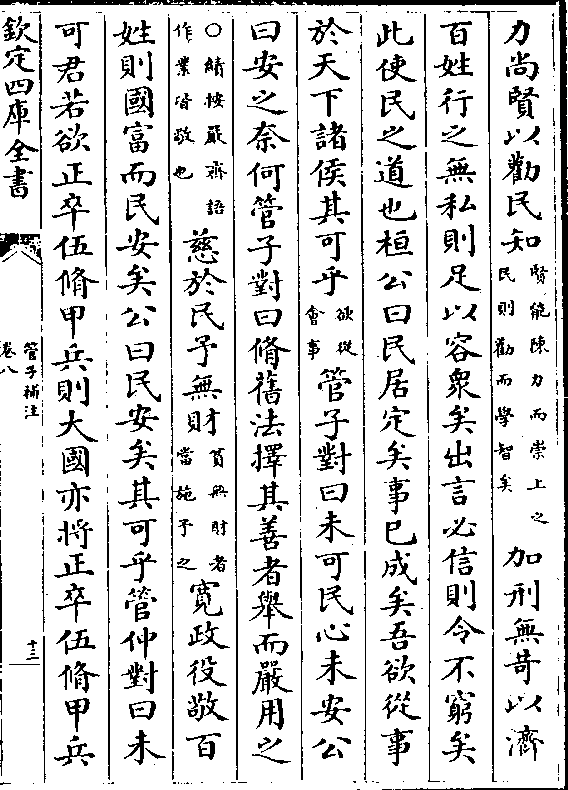 力尚賢以勸民知賢能陳力而崇上之民則勸而學智矣加刑無苛以濟
百姓行之無私則足以容衆矣出言必信則令不窮矣
此使民之道也桓公曰民居定矣事已成矣吾欲從事
於天下諸侯其可乎欲從會事管子對曰未可民心未安公
曰安之奈何管子對曰脩舊法擇其善者舉而嚴用之
○績按嚴齊語作業皆敬也慈於民予無財貧無財者當施予之寛政役敬百
姓則國富而民安矣公曰民安矣其可乎管仲對曰未
可君若欲正卒伍脩甲兵則大國亦將正卒伍脩甲兵
欽定四庫全書
管子補注
卷八
十三